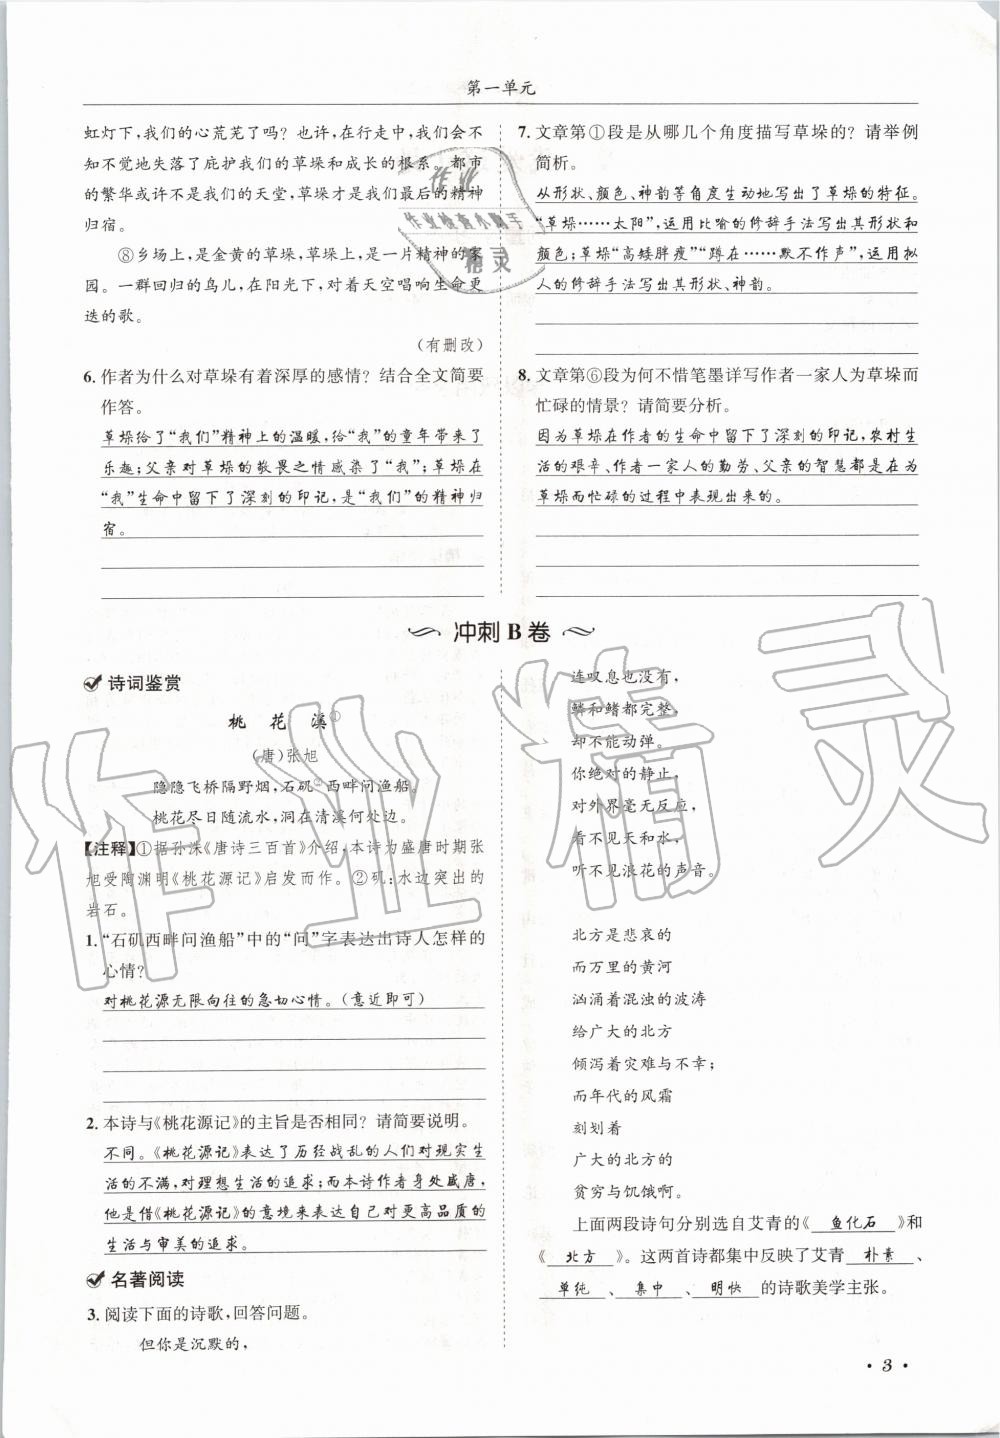 第一单元
虹灯下,我们的心荒芜了吗?也许,在行走中,我们会不
知不觉地失落了庇护我们的草垛和成长的根系。都市
的繁华或许不是我们的天堂,草垛才是我们最后的精神
归宿。
⑧乡场上,是金黄的草垛,草垛上,是一片精神的家
园。一群回归的鸟儿,在阳光下,对着天空唱响生命更
迭的歌。
(有删改)
6. 作者为什么对草垛有着深厚的感情?结合全文简要
作答。
草垛给了“我们”精神上的温暖,给“我”的童年带来了
乐趣;父亲对草垛的敬畏之情感染了“我”;草垛在
“我”生命中留下了深刻的印记,是“我们”的精神归
宿。
7. 文章第①段是从哪几个角度描写草垛的?请举例
简析。
从形状、颜色、神韵等角度生动地写出了草垛的特征。
“草垛……太阳”,运用比喻的修辞手法写出其形状和
颜色;草垛“高矮胖瘦”“蹲在……默不作声”,运用拟
人的修辞手法写出其形状、神韵。
8. 文章第⑥段为何不惜笔墨详写作者一家人为草垛而
忙碌的情景?请简要分析。
因为草垛在作者的生命中留下了深刻的印记,农村生
活的艰辛、作者一家人的勤劳、父亲的智慧都是在为
草垛而忙碌的过程中表现出来的。
冲刺B卷
诗词鉴赏
桃 花 溪①
(唐)张旭
隐隐飞桥隔野烟,石矶②西畔问渔船。
桃花尽日随流水,洞在清溪何处边。
【注释】①据孙洙《唐诗三百首》介绍,本诗为盛唐时期张
旭受陶渊明《桃花源记》启发而作。②矶:水边突出的
岩石。
1. “石矶西畔问渔船”中的“问”字表达出诗人怎样的
心情?
对桃花源无限向往的急切心情。(意近即可)
2. 本诗与《桃花源记》的主旨是否相同?请简要说明。
不同。《桃花源记》表达了历经战乱的人们对现实生
活的不满,对理想生活的追求;而本诗作者身处盛唐,
他是借《桃花源记》的意境来表达自己对更高品质的
生活与审美的追求。
名著阅读
3. 阅读下面的诗歌,回答问题。
但你是沉默的,
连叹息也没有,
鳞和鳍都完整,
却不能动弹。
你绝对的静止,
对外界毫无反应,
看不见天和水,
听不见浪花的声音。
北方是悲哀的
而万里的黄河
汹涌着混浊的波涛
给广大的北方
倾泻着灾难与不幸;
而年代的风霜
刻划着
广大的北方的
贫穷与饥饿啊。
上面两段诗句分别选自艾青的《 鱼化石 》和
《 北方 》。这两首诗都集中反映了艾青 朴素 、
单纯 、 集中 、 明快 的诗歌美学主张。
· 3 ·
作业
作业检查小助手
精灵
作业精灵